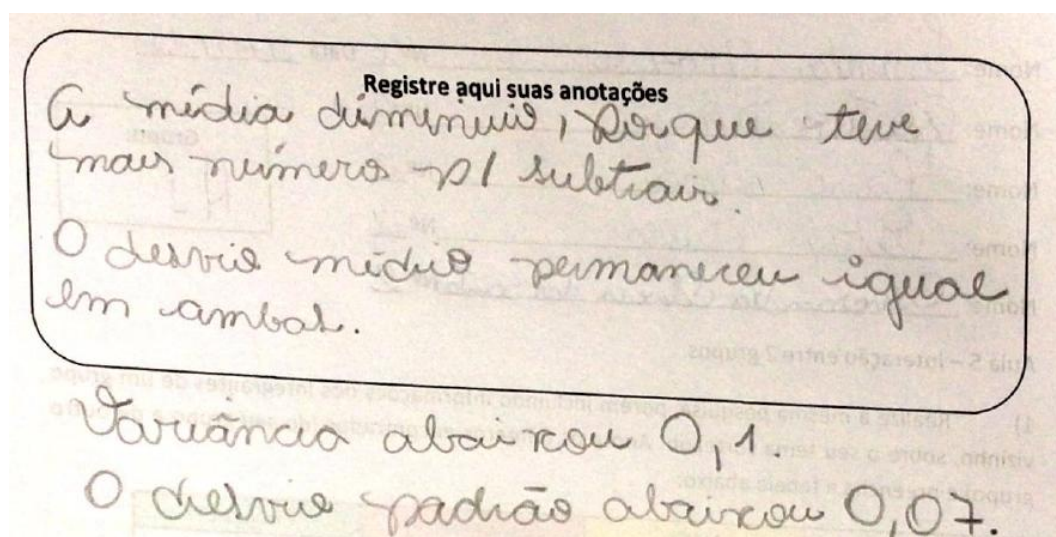 Registre aqui suas anotações
A média diminuiu, porque teve
mais número p/ subtrair.
O desvio médio permaneceu igual
em ambas.
Variância abaixou 0,1.
O desvio padrão abaixou 0,07.